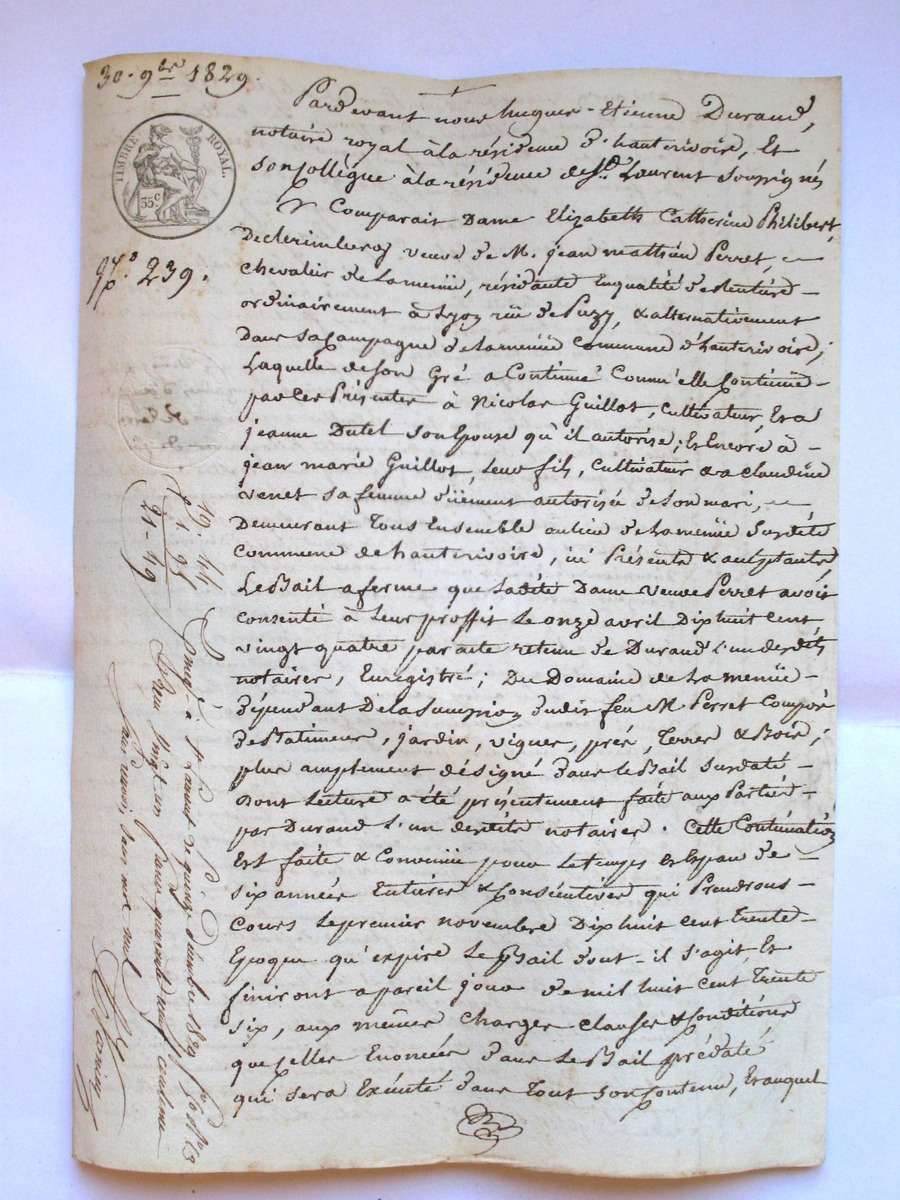 30. 9bre 1829.
TIMBRE ROYAL.
35 c
No 239.
Pardevant nous hugues-Etienne Durand,
notaire royal à la résidence d'hauterivoire, Et
son Collègue à la résidence de St. Laurent soussignés
Comparait Dame Elizabeth Catherine Philibert
veuve de M. jean mathieu Perret,
chevalier de Lamenüe, résidante En qualité de Rentière
ordinairement à Lyon rüe de Puzy, & alternativement
dans sa Campagne de Lamenüe Commune d'hauterivoire;
Laquelle de son Gré a Continué Comm'elle Continüe
par Ces Présentes à Nicolas Guillot, Cultivateur, Et a
jeanne Dutel son Epouse qu'il autorise; Et Encore à
jean marie Guillot, leur fils, Cultivateur & a claudine
venet sa femme düement autorisée de son mari,
Demeurant Tous Ensemble au lieu de Lamenüe Susdite
Commune de hauterivoire, ici Présents & acceptants,
Le Bail a ferme que Ladite Dame veuve Perret avoit
Consenti à Leur proffit Le onze avril Dix huit Cent
vingt quatre par acte retenu de Durand L'un desdits
notaires, Enregistré; Du Domaine de La menüe
dépendant De la Succession dudit feu M. Perret Composé
de Batiments, jardin, vignes, prés, Terres & Bois;
plus amplement désigné dans le Bail susdaté
dont Lecture a été présentement faite aux Parties
par Durand L'un desdits notaires. Cette Continuation
Est faite & Convenüe pour Le temps et Espau de
six années Entières & Consécutives qui Prendrons
Cours le premier novembre Dix huit Cent trente
Epoque qu'expire Le Bail dont-il s'agit, Et
finiront a pareil jour de mil huit Cent Trente
six, aux mêmes Charges Clauses & Conditions
que Celles Enoncées dans Le Bail prédaté
qui sera Exécuté dans Tout son Contenu, Et auquel
19. 44
1. 95
21 - 49
à St Laurent le quinze décembre 1829 fo
vingt un francs quarante neuf centimes